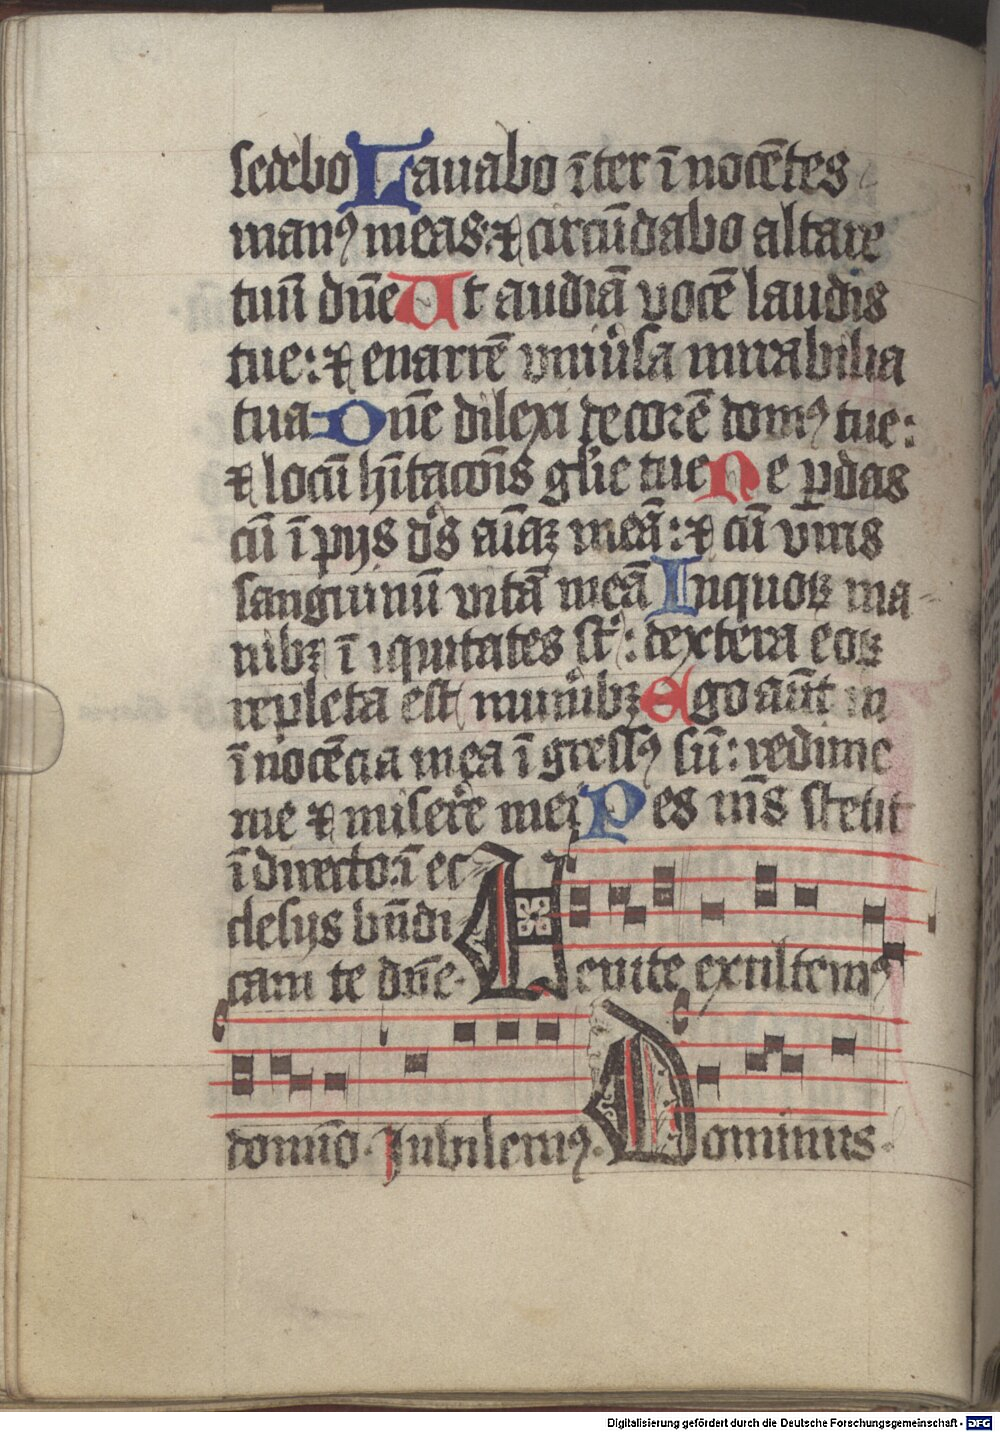 sedebo Lauabo īter īnocētes
manꝰ meas: ⁊ circūdabo altare
tuū dn̄e At audiā vocē laudis
tue: ⁊ enarrē vniũsa mirabilia
tua Dn̄e dilexi decorē domꝰ tue:
⁊ locū hītacōis gl̄ie tue Ne ꝑdas
cū īpijs ds̄ aīaꝫ meā: ⁊ cū viris
sanguinū vitā meā In quoꝝ ma-
nibꝫ īiquitates st̄: dextera eoꝝ
repleta est munibꝫ Ego aūt in
īnocēcia mea īgressꝰ sū: redime
me ⁊ miserē mei Pes mꝰs stetit
īdirecto: ī ec
clesijs bn̄di
cam te dn̄e. Uenite exultemꝰ
domīo. Jubilemꝰ. Dominus.
Digitalisierung gefördert durch die Deutsche Forschungsgemeinschaft - DFG